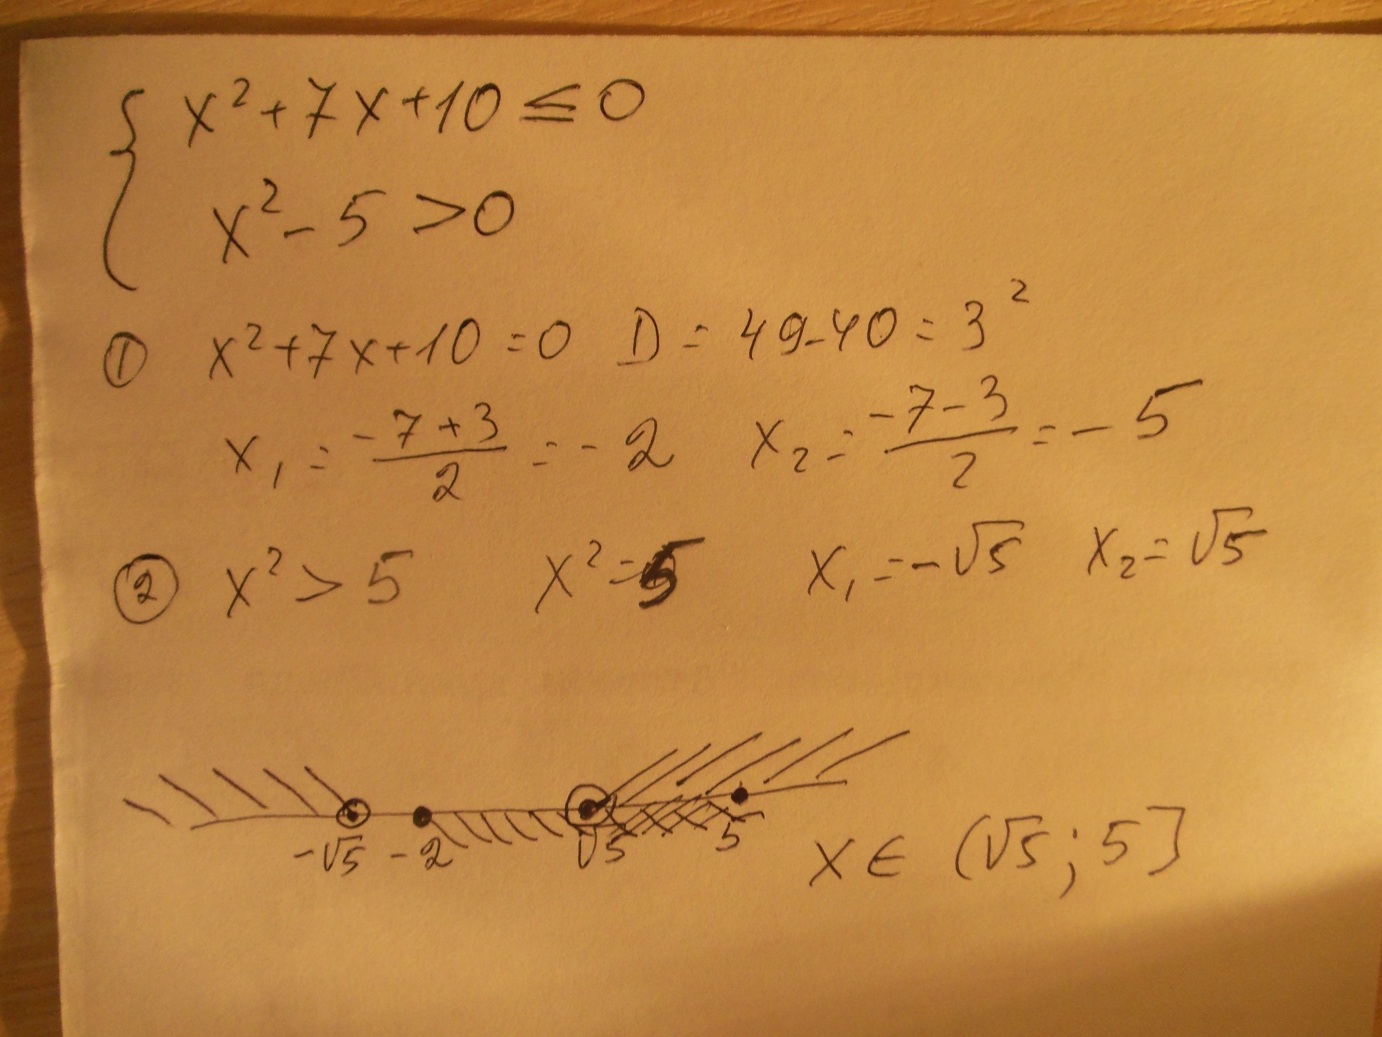 { x² + 7x + 10 ≤ 0
x² - 5 > 0
① x² + 7x + 10 = 0 D = 49 - 40 = 3²
x₁ = (-7 + 3)/2 = -2 x₂ = (-7 - 3)/2 = -5
② x² > 5 x² = 5 x₁ = -√5 x₂ = √5
-√5 -2 √5 5
x ∈ (√5; 5]